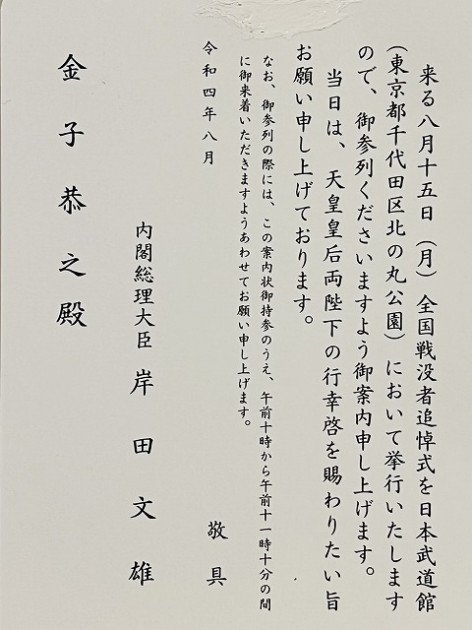 来る八月十五日（月）全国戦没者追悼式を日本武道館
（東京都千代田区北の丸公園）において挙行いたします
ので、御参列くださいますよう御案内申し上げます。
当日は、天皇皇后両陛下の行幸啓を賜わりたい旨
お願い申し上げております。
敬具
なお、御参列の際には、この案内状御持参のうえ、午前十時から午前十一時十分の間
に御来着いただきますようあわせてお願い申し上げます。
令和四年八月
内閣総理大臣 岸田文雄
金子恭之殿